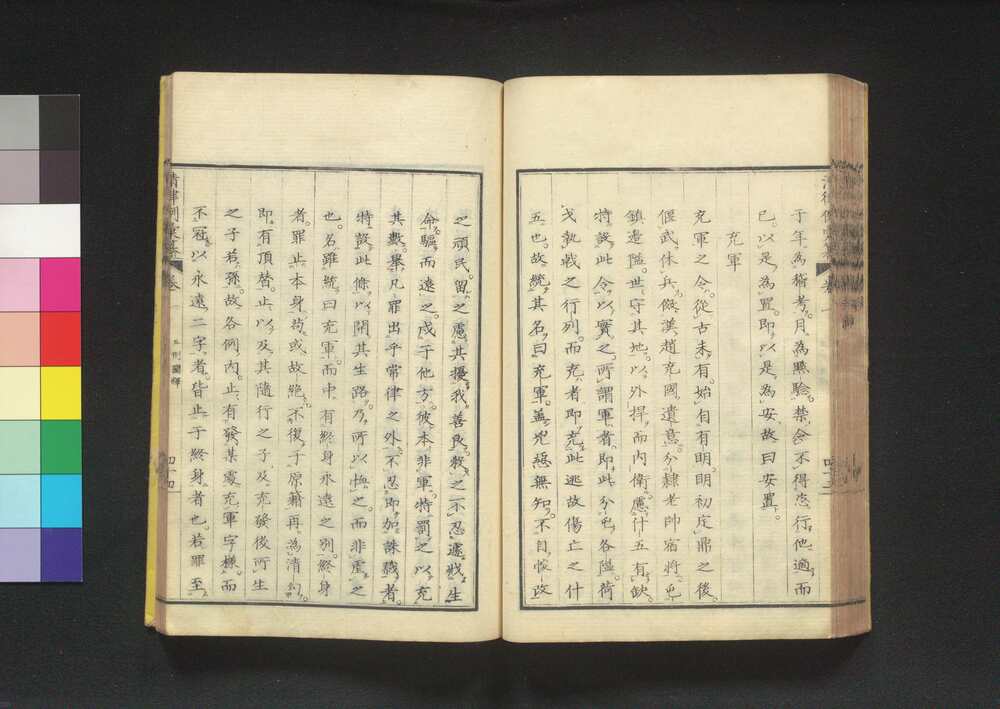 于年。為稽考。月為㸃驗。禁令不得恣行他適。而
已。以是為置。即以是為安。故曰安置。
充軍
充軍之令。從古未有。始自有明。明初定鼎之後。
偃武休兵。倣漢趙充國遺意。分隷老帥宿將。屯
鎮邊隘。世守其地。以外捍而內衛。應什五有缺。
特設此令以實之。所謂軍者。即此分屯各隘。荷
戈執戟之行列。而充者即充此逃故傷亡之什
五也。故統其名曰充軍。蓋兇惡無知。不自悛改
之頑民。留之慮其擾我善良。殺之不忍遽戕生
命。驅而遠之。戍于他方。彼本非軍。特罰之以充
其數。舉凡罪出乎常律之外。不忍即加誅戮者。
特設此條。以開其生路。乃所以恤之。而非虐之
也。名雖統曰充軍。而中有終身永遠之別。終身
者。罪止本身。苟或故絶。不復于原籍再為清勾。
即有頂替。止以及其隨行之子。及充發後所生
之子若孫。故各例內。止有發某處充軍字樣。而
不冠以永遠二字者。皆止于終身者也。若罪至
清律例彙纂
卷一
五刑圖釋
四十四
卷一
四十三